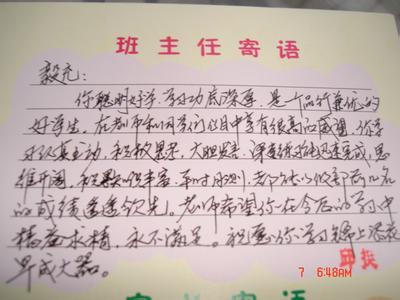 班主任寄语
毅充：
你聪明好学，学习功底深厚，是个品行兼优的
好学生，在老师和同学们心目中享有很高的威望，你学
习认真主动，积极思考，大胆发言，课堂练习迅速完成，思
维开阔，积累丰富，平时测，都能以前几名
的成绩遥遥领先。老师希望你在今后的学习中
精益求精，永不满足。祝愿你学习锦上添花
早成大器。
7 6:48AM
寄语